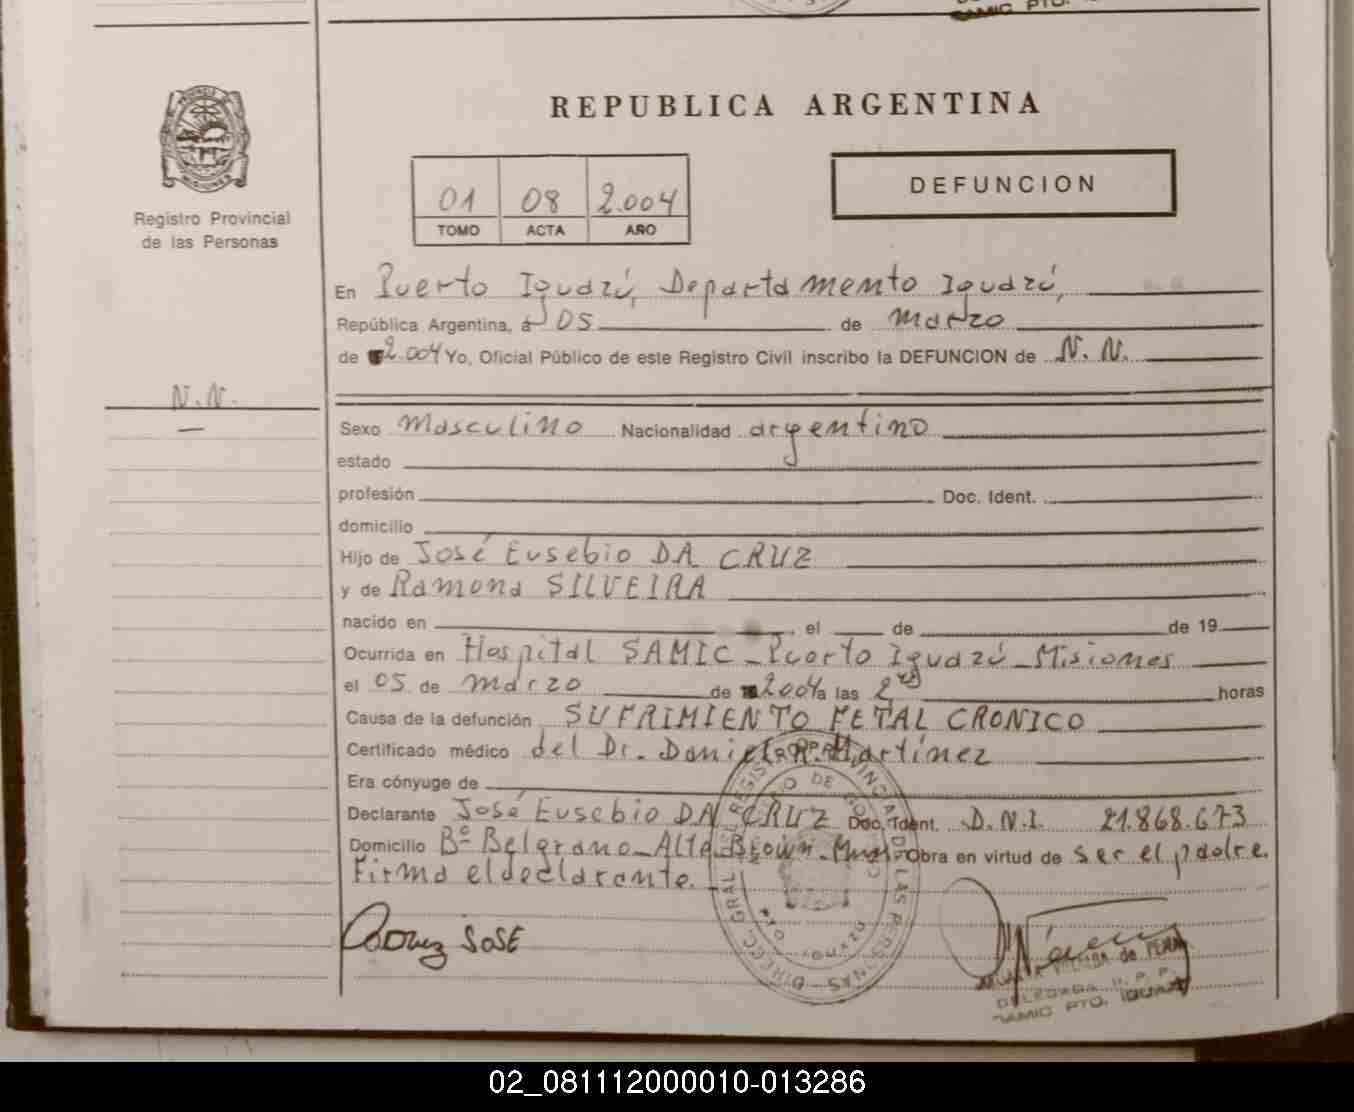 REPUBLICA ARGENTINA
Registro Provincial
de las Personas
01 08 2.004
TOMO ACTA AÑO
DEFUNCION
En Puerto Iguazú, Departamento Iguazú,
República Argentina, a 05 de marzo
de 2.004 Yo, Oficial Público de este Registro Civil inscribo la DEFUNCION de N.N.
N.N.
Sexo Masculino Nacionalidad argentino
estado
profesión Doc. Ident.
domicilio
Hijo de José Eusebio DA CRUZ
y de Ramona SILVEIRA
nacido en , el de de 19
Ocurrida en Hospital SAMIC - Puerto Iguazú - Misiones
el 05 de marzo de 2.004 a las 2 horas
Causa de la defunción SUFRIMIENTO FETAL CRONICO
Certificado médico del Dr. Daniel R. Martínez
Era cónyuge de
Declarante José Eusebio DA CRUZ Doc. Ident. D.N.I. 21.868.673
Domicilio Bº Belgrano - Alte Brown - Obra en virtud de ser el padre.
Firma el declarante.
JOSE
DIREC. GRAL REGIST PROVINCIAL DE LAS PERSONAS
DELEGADA R. P. P.
SAMIC PTO. IGUAZU
02_081112000010-013286